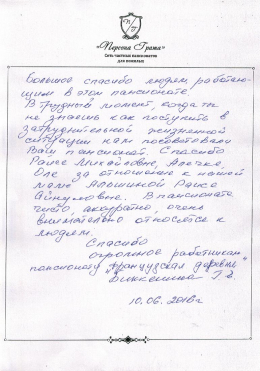 «Первая Грата»
Сеть частных пансионатов
для пожилых
Большое спасибо людям, работаю-
щим в этом пансионате.
В трудный момент, когда ты
не знаешь как поступить в
затруднительной жизненной
ситуации нам посоветовали
Ваш пансионат. Спасибо
Раисе Михайловне, Алечке,
Оле за отношение к нашей
маме Альшиной Раисе
Айнуловне. В пансионате
чисто, аккуратно, очень
внимательно относятся к
людям.
Спасибо
огромное работникам
пансионату "Французская деревня"
10.06.2016г